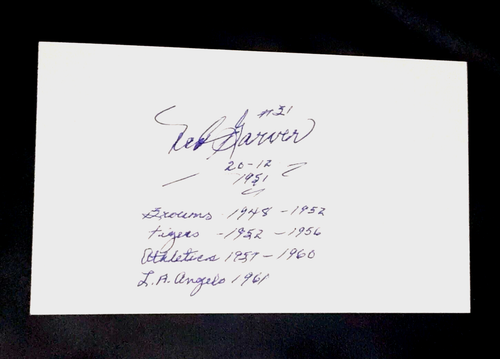 #21
Ned Garver
20-12
1951
Browns 1948 - 1952
Tigers - 1952 - 1956
Athletics 1957 - 1960
L.A. Angels 1961